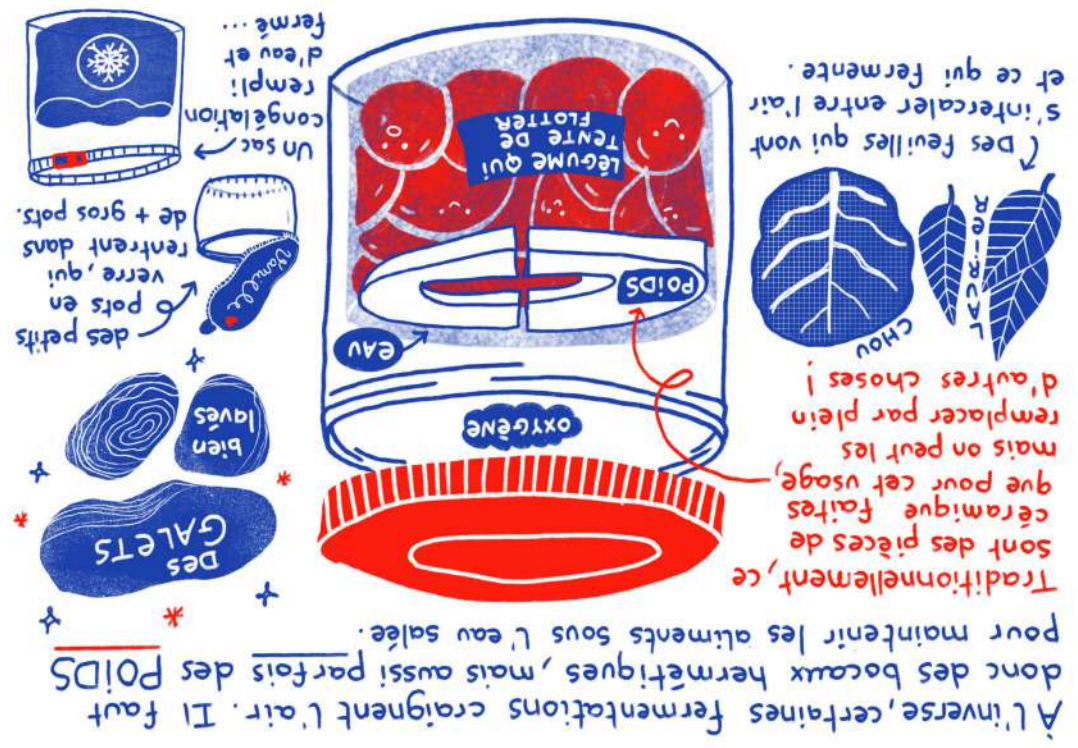 À l'inverse, certaines fermentations craignent l'air. Il faut
donc des bocaux hermétiques, mais aussi parfois des POIDS
pour maintenir les aliments sous l'eau salée.
Traditionnellement, ce
sont des pièces de
céramique faites
que pour cet usage,
mais on peut les
remplacer par plein
d'autres choses !
OXYGÈNE
EAU
POIDS
LÉGUME QUI
TENTE DE
FLOTTER
DES
GALETS
bien
lavés
des petits
pots en
verre, qui
rentrent dans
de + gros pots.
Vanille
Un sac
congélation
rempli
d'eau et
fermé ...
CHOU
RAIFORT
Des feuilles qui vont
s'intercaler entre l'air
et ce qui fermente.